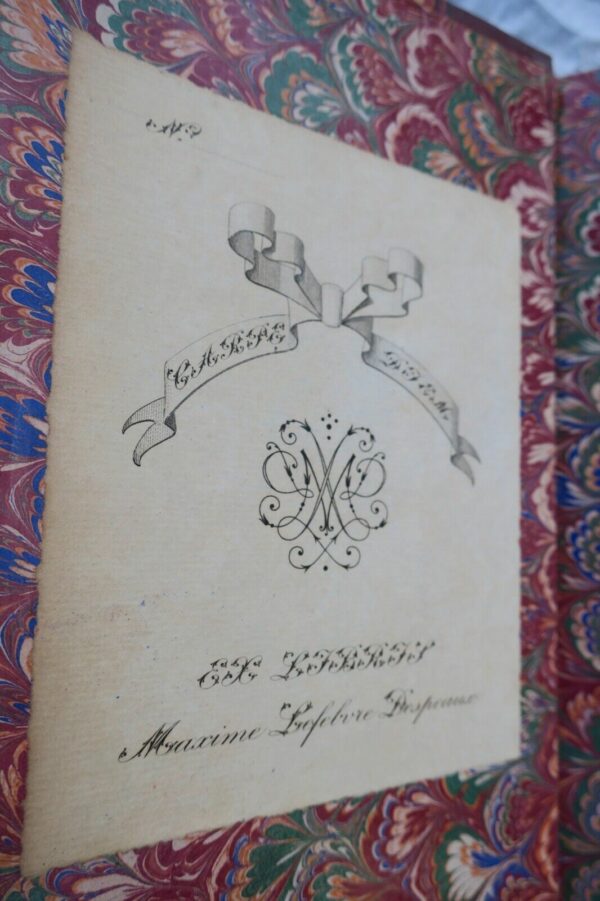 N°
CARPE
DIEM
EX LIBRIS
Maxime Lefebvre Despeaux